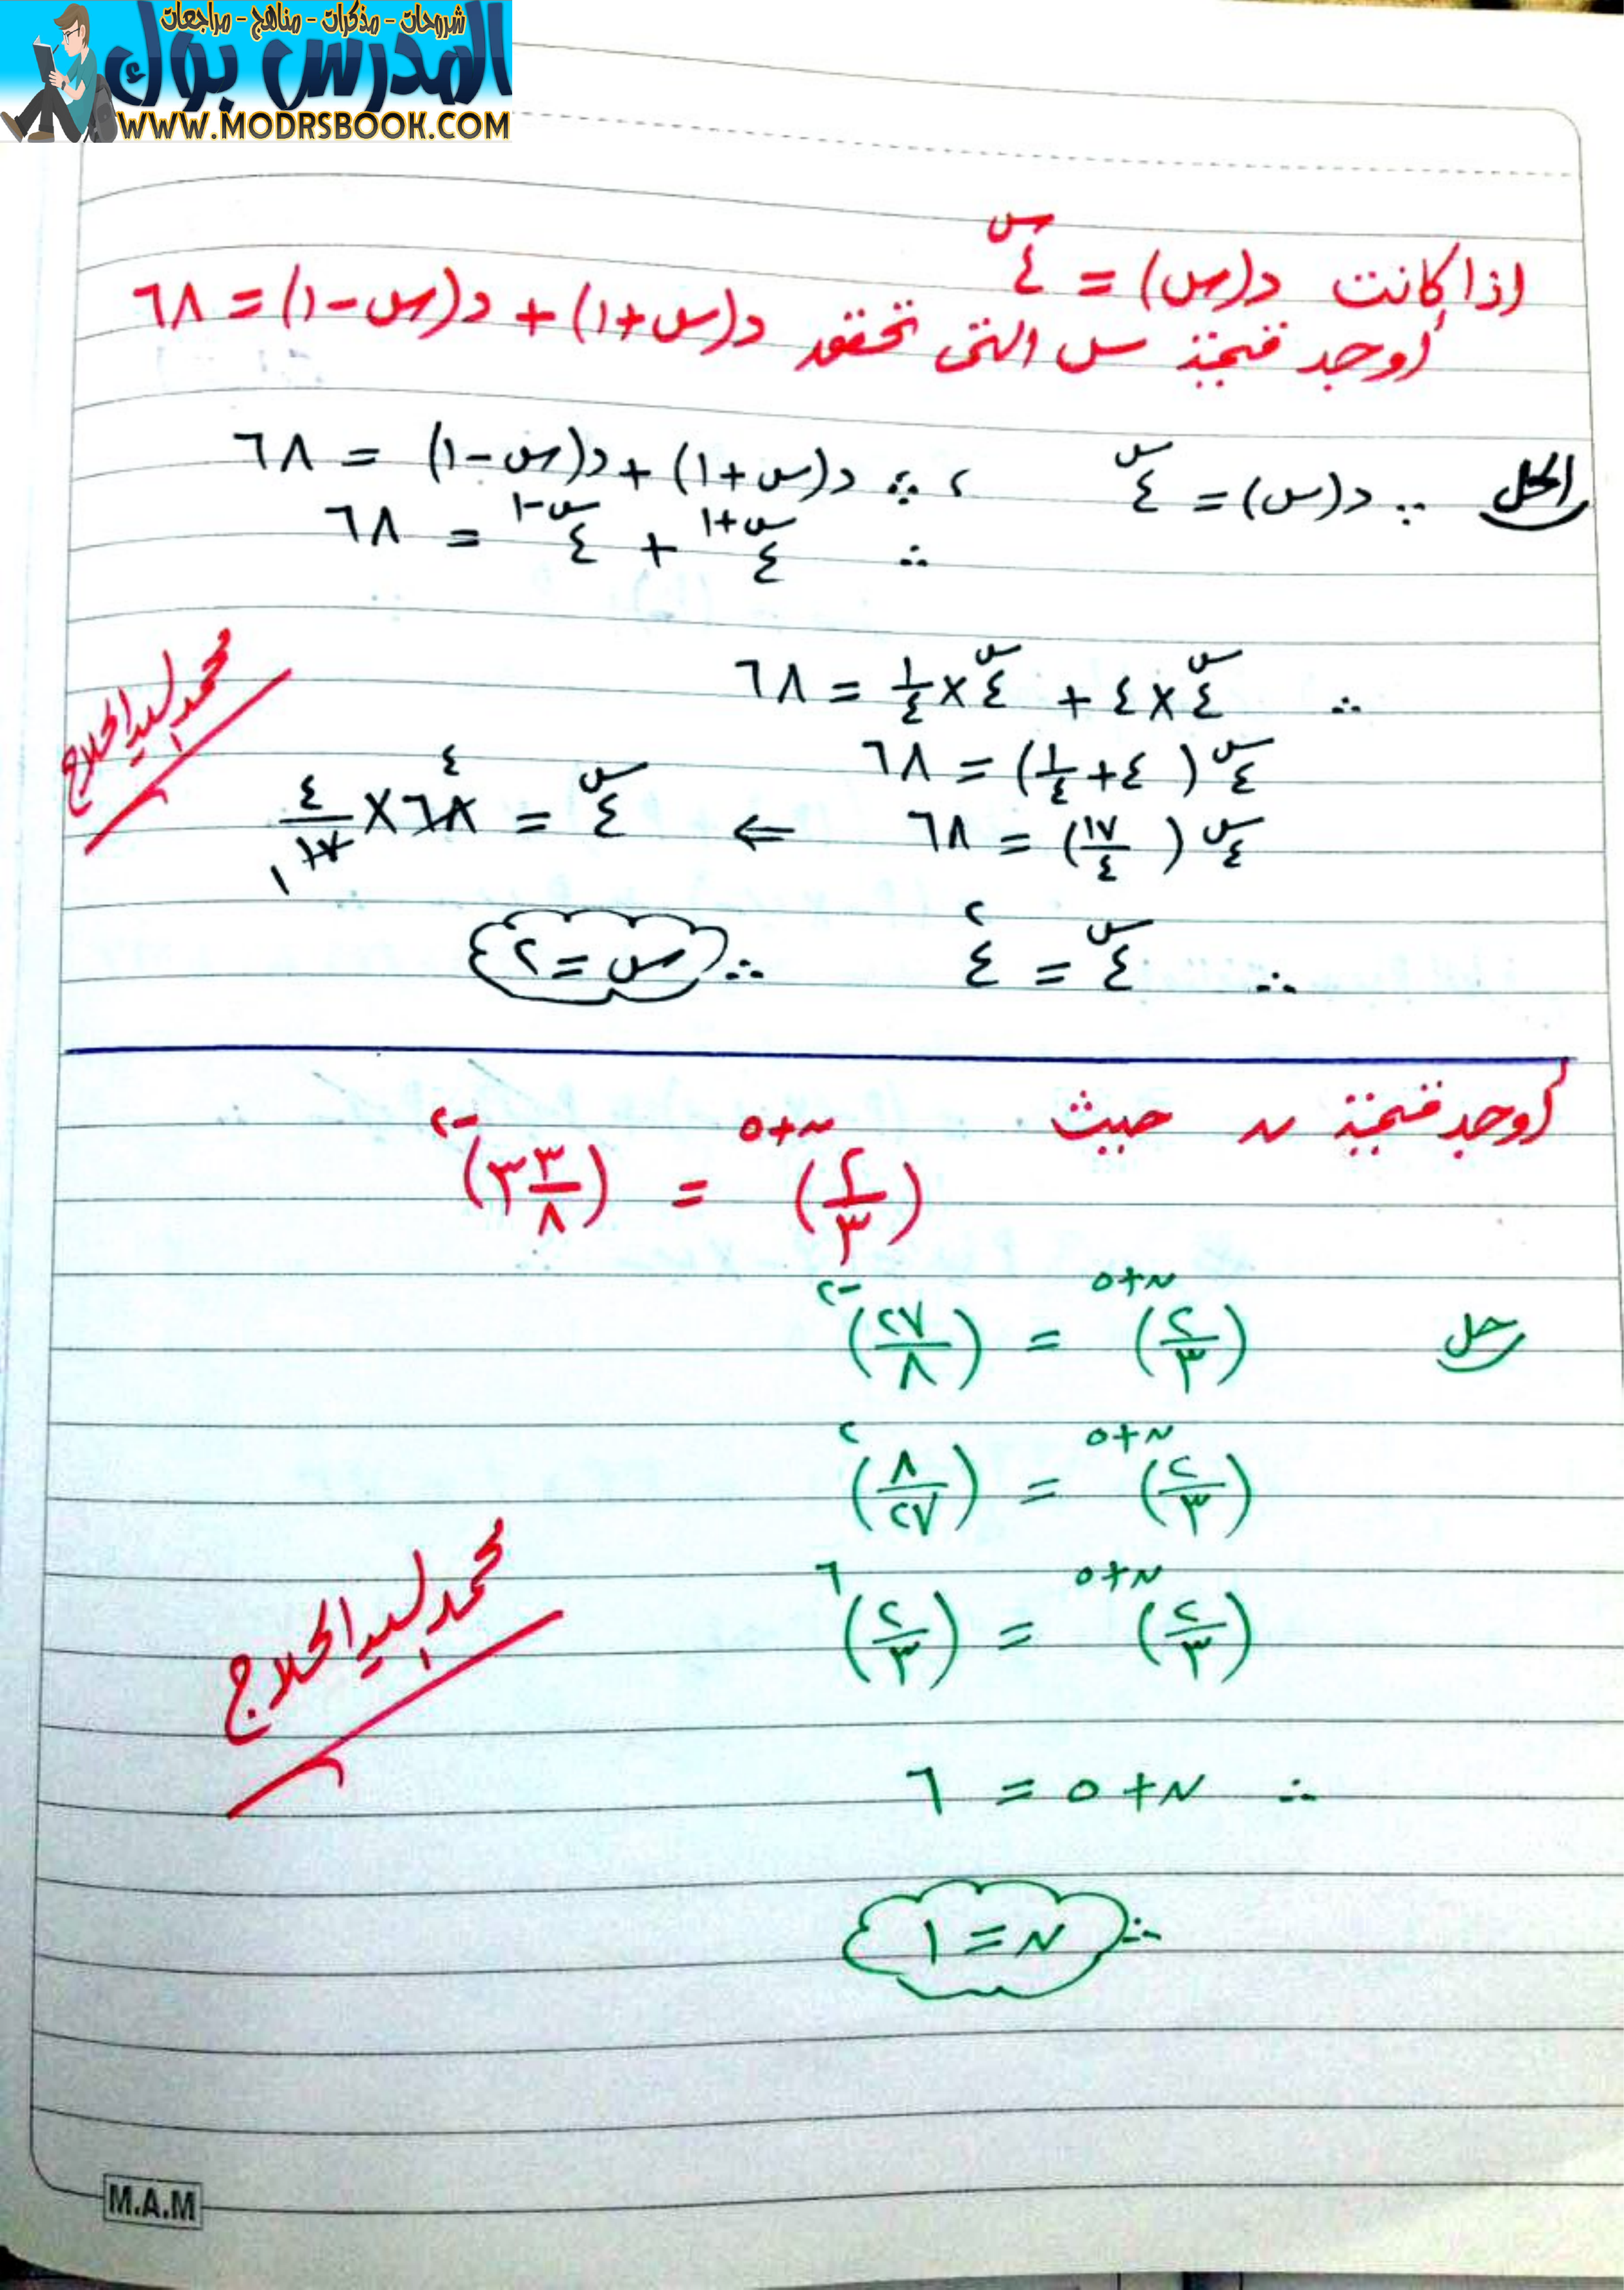 شروحات - مذكرات - مناهج - مراجعات
المدرس بوك
WWW.MODRSBOOK.COM
اذا كانت د(س) = ٤^س
أوجد قيمة س التى تحقق د(س+١) + د(س-١) = ٦٨
الحل ∵ د(س) = ٤^س ، ∵ د(س+١) + د(س-١) = ٦٨
∴ ٤^(س+١) + ٤^(س-١) = ٦٨
∴ ٤^س × ٤ + ٤^س × ١/٤ = ٦٨
٤^س (٤ + ١/٤) = ٦٨
٤^س (١٧/٤) = ٦٨ ⇐ ٤^س = ٦٨ × ٤/١٧ ٤ ١
∴ ٤^س = ٤^٢ ∴ س = ٢
محمد السيد الحلاج
أوجد قيمة ن حيث (٢/٣)^(ن+٥) = (٣ ٣/٨)^(-٢)
حل (٢/٣)^(ن+٥) = (٢٧/٨)^(-٢)
(٢/٣)^(ن+٥) = (٨/٢٧)^٢
(٢/٣)^(ن+٥) = (٢/٣)^٦
محمد السيد الحلاج
∴ ن+٥ = ٦
∴ ن = ١
M.A.M